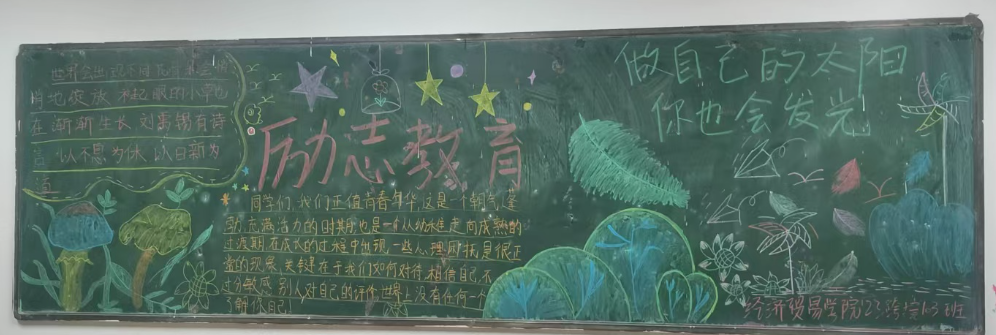 世界会出现不
地绽放 不起眼的小草也
在渐渐生长 刘禹锡有诗
言 以不息为体 以日新为
道
励志教育
同学们,我们正值青春年华,这是一个朝气蓬
勃,充满活力的时期,也是一个从幼稚走向成熟的
过渡期,在成长的过程中出现一些心理困扰,是很正
常的现象,关键在于我们如何对待,相信自己,不
过分敏感 别人对自己的评价 世界上没有任何一个
了解你自己
做自己的太阳
你也会发光
经济贸易学院23跨境 班